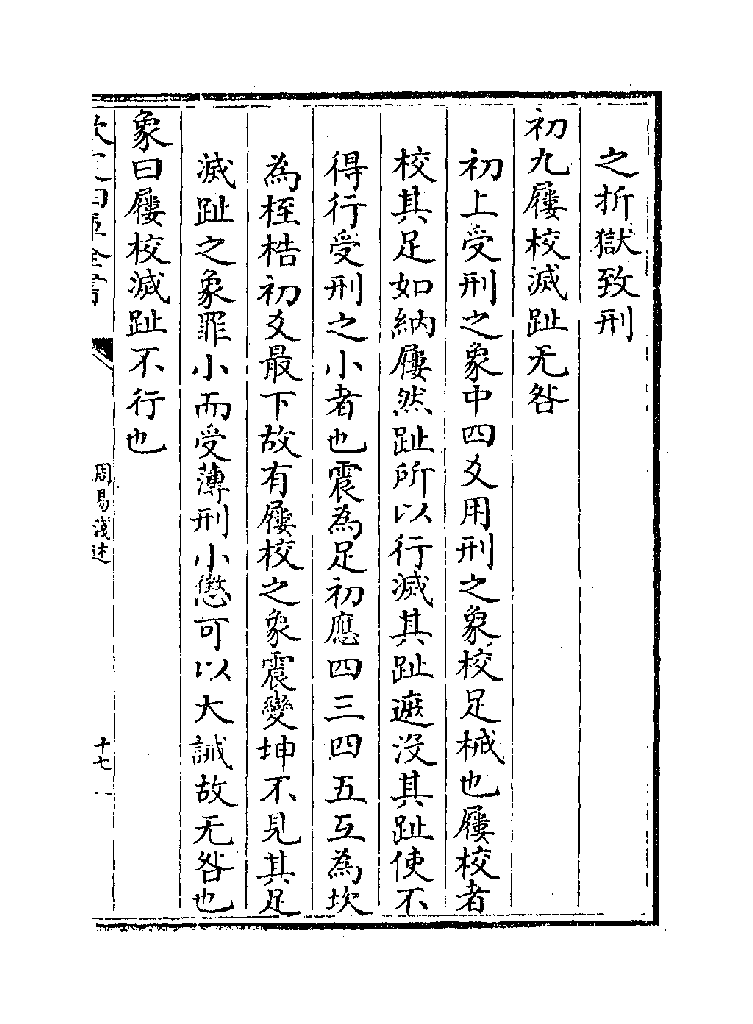 之折獄致刑
初九屨校滅趾无咎
初上受刑之象中四爻用刑之象校足械也屨校者
校其足如納屨然趾所以行滅其趾遮沒其趾使不
得行受刑之小者也震為足初應四三四五互為坎
為桎梏初爻最下故有屨校之象震變坤不見其足
滅趾之象罪小而受薄刑小懲可以大誡故无咎也
象曰屨校滅趾不行也
周易淺述
十七